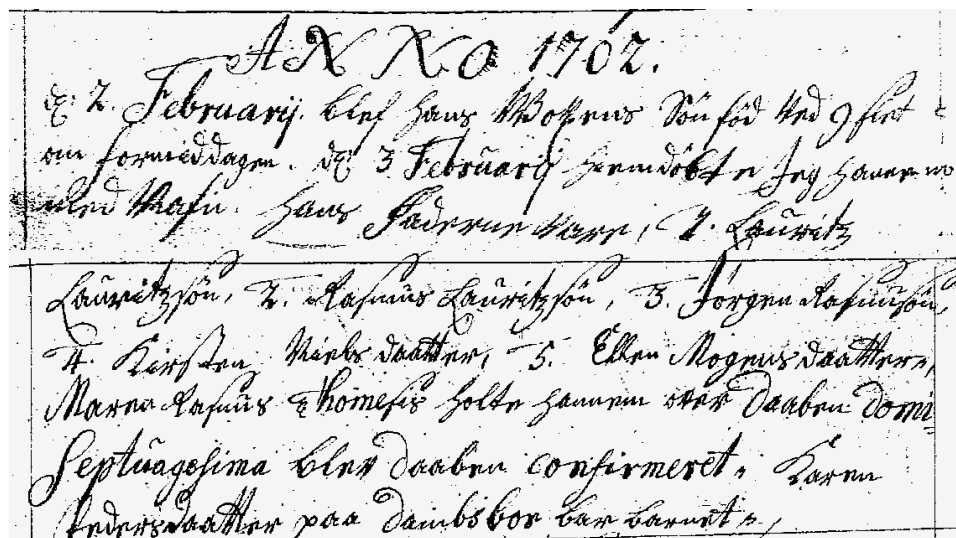 ANNO 1702.
d: 2. Februarij. blef Hans Søn fød Ved 9 slet
om formiddagen. d: 3 Februarij hiemdøbte Jeg hannem
med Nafn. Hans Faderne Vare, 1. Lauritz
Lauritzsøn, 2. Rasmus Lauritzsøn, 3. Jørgen Rasmusøn,
4. Kirsten Nielsdaatter, 5. Ellen Mogensdaatter,
Maren Rasmus Thomesis holte hannem over Daaben Domi
Septuagesima blev Daaben Confirmeret. Karen
Pedersdaatter paa bar barnet